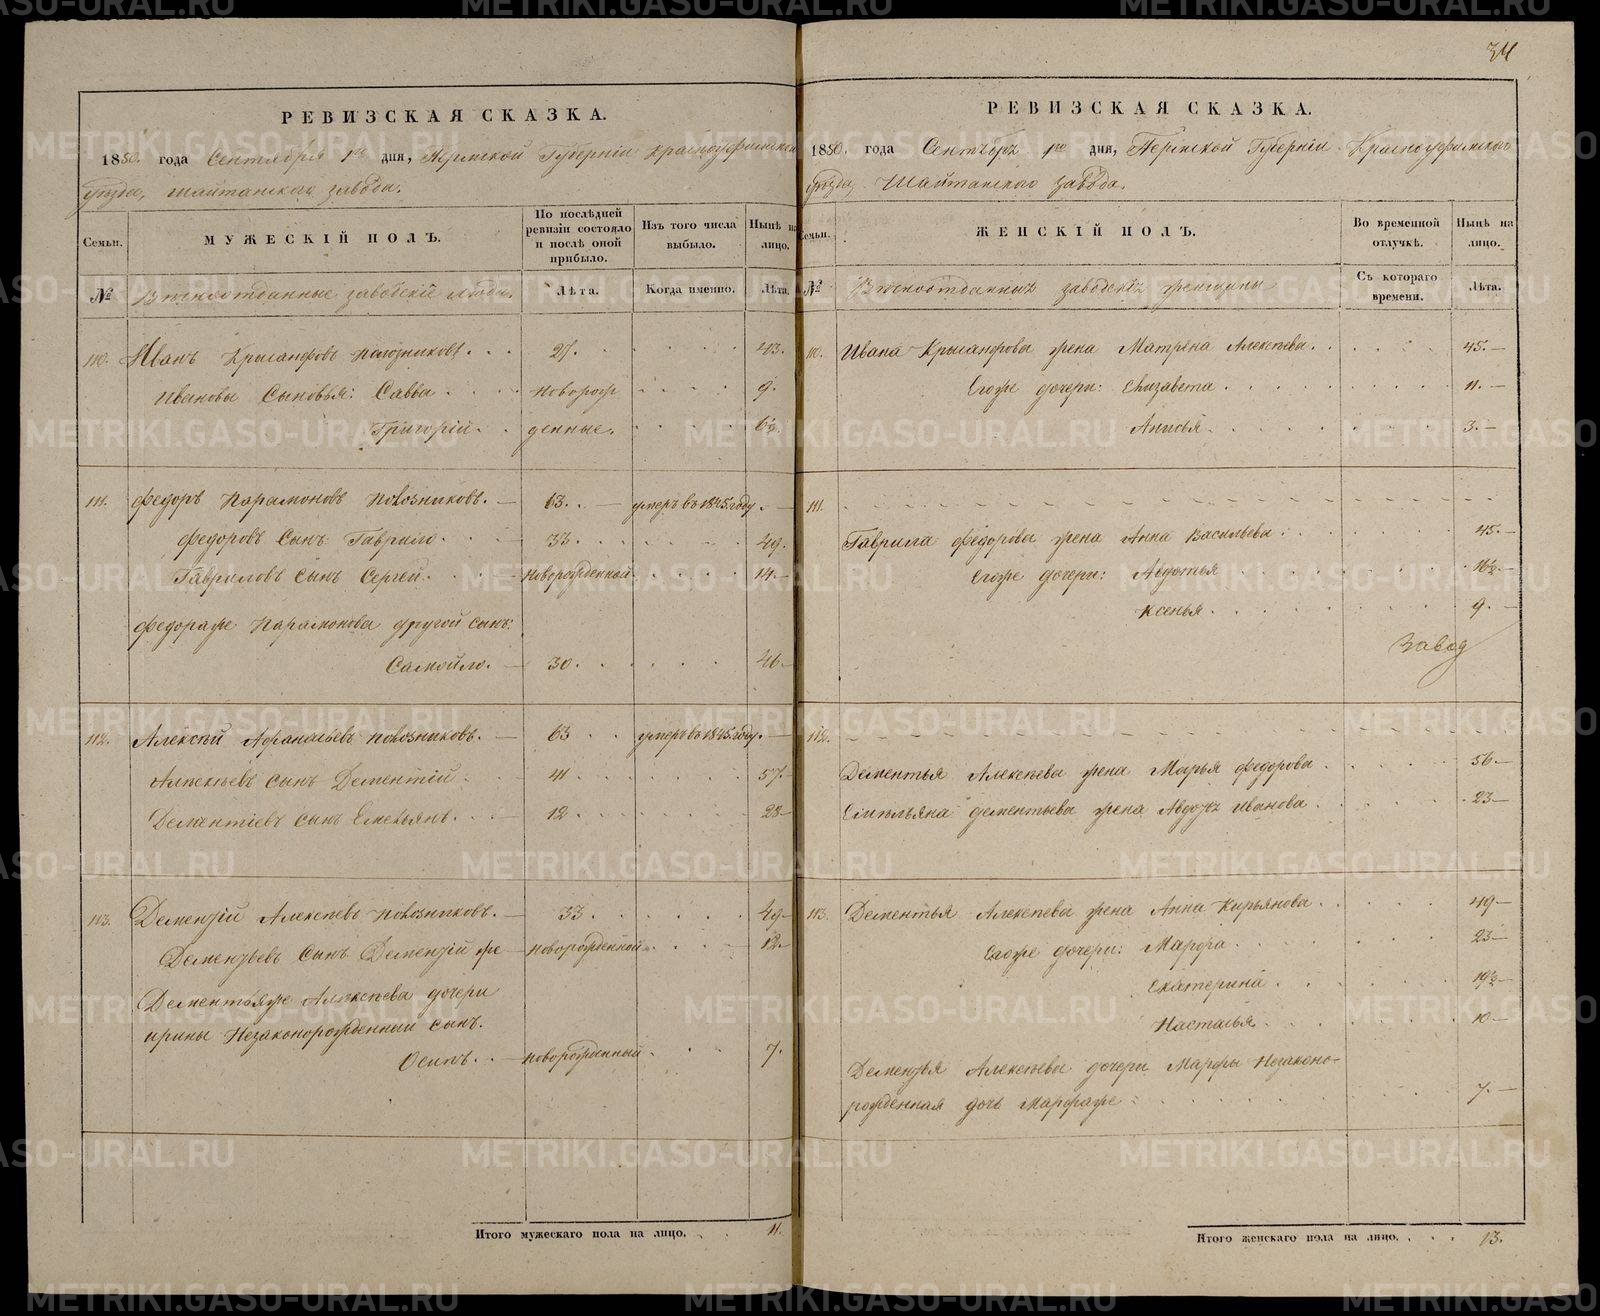 34
РЕВИЗСКАЯ СКАЗКА.
1850. года Сентября 1го дня, Пермской Губернiи Красноуфимскаго
уѣзда, Шайтанскаго завода.
Семьи. МУЖЕСКIЙ ПОЛЪ. По послѣдней ревизiи состояло и послѣ оной прибыло. Изъ того числа выбыло. Нынѣ на лицо.
№ Вѣчноотданные заводскiе люди. Лѣта. Когда именно. Лѣта.
110. Иванъ Крысанфовъ 27. 43.
Ивановы Сыновья: Савва новорож 9.
Григорiй. денные. 6½
111. Федоръ Парамоновъ Повозниковъ. 63. умеръ въ 1845 году.
Федоровъ Сынъ Гаврило. 33. 49.
Гавриловъ Сынъ Сергей. Новорожденной 14.
Федораже Парамонова другой сынъ:
Самойло. 30. 46
112. Алексѣй Афанасьевъ Повозниковъ. 63 умеръ въ 1845 году.
Алексѣевъ сынъ Дементiй 41 57.
Дементiевъ сынъ Емельянъ. 12 28
113. Дементiй Алексѣевъ Повозниковъ. 33. 49
Дементьевъ Сынъ Дементiй же новорожденной 12.
Дементьяже Алексѣева дочери
ирины Незаконорожденный сынъ.
Осипъ. новорожденный 7.
Итого мужескаго пола на лицо. 11.
РЕВИЗСКАЯ СКАЗКА.
1850. года Сентября 1го дня, Пермской Губернiи Красноуфимскаго
уѣзда, Шайтанскаго завода.
Семьи. ЖЕНСКIЙ ПОЛЪ. Во временной отлучкѣ. Нынѣ на лицо.
№ Вѣчноотданныхъ заводскихъ женщины Съ котораго времени. Лѣта.
110. Ивана Крысанфова жена Матрена Алексѣева. 45.
Егоже дочери: Елизавета 11.
Анисья. 3.
111.
Гаврила Федорова жена Анна Васильева 45.
Егоже дочери: Авдотья 16½
Ксенья. 9.
Завод
112.
Дементья Алексѣева жена Марья Федорова 56
Емельяна Дементьева жена Иванова 23
113. Дементья Алексѣева жена Анна Кирьянова 49
Егоже дочери: Марфа 23
Екатерина 19½
Настасья 10
Дементья Алексѣева дочери Марфы Незаконо-
рожденная дочь Марфаже 7.
Итого женскаго пола на лицо. 13.
METRIKI.GASO-URAL.RU